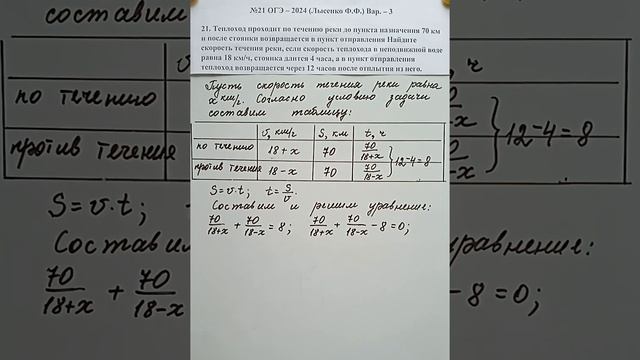 №21 ОГЭ – 2024 (Лысенко Ф.Ф.) Вар. – 3
21. Теплоход проходит по течению реки до пункта назначения 70 км
и после стоянки возвращается в пункт отправления Найдите
скорость течения реки, если скорость теплохода в неподвижной воде
равна 18 км/ч, стоянка длится 4 часа, а в пункт отправления
теплоход возвращается через 12 часов после отплытия из него.
Пусть скорость течения реки равна
x км/ч. Согласно условию задачи
составим таблицу:
v, км/ч S, км t, ч
по течению 18+x 70 70/18+x
против течения 18-x 70 70/18-x } 12-4=8
S=v·t; t=S/v.
Составим и решим уравнение:
70/18+x + 70/18-x = 8; 70/18+x + 70/18-x - 8=0;
составим
по течению
против течения
S=v·t;
Составим
70/18+x + 70/18-x
, ч
70/18+x
70/18-x } 12-4=8
- 8=0;